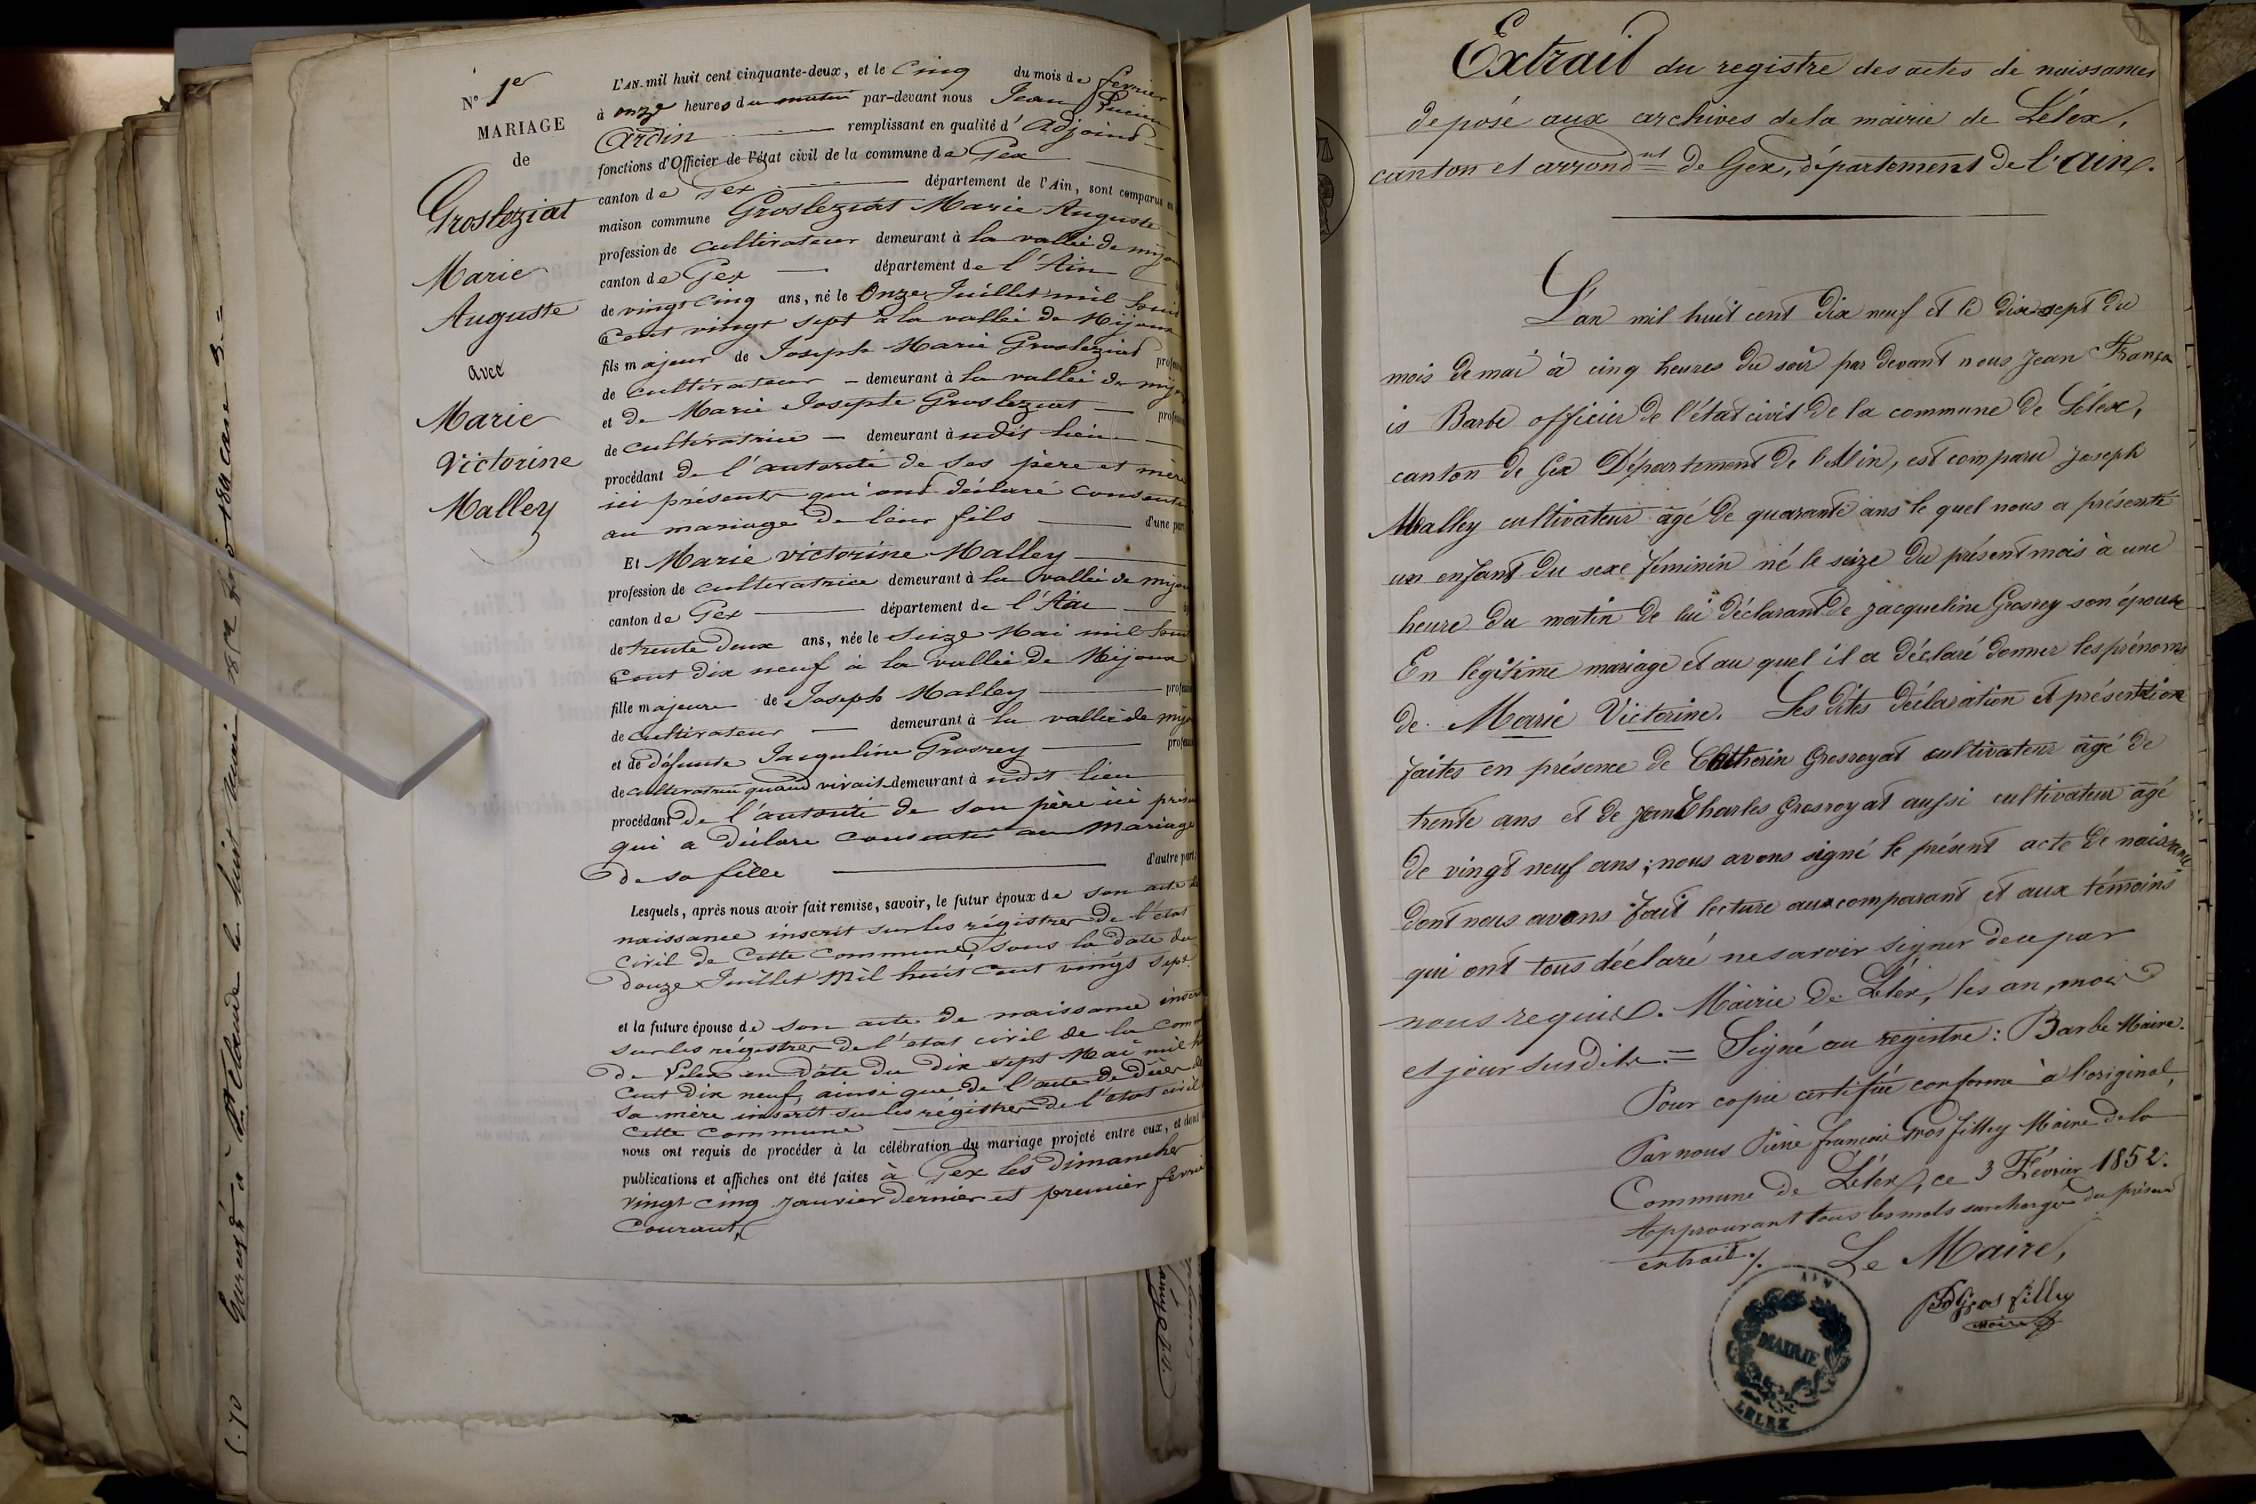 N° 1er
MARIAGE
de
Grosleziat
Marie
Auguste
avec
Marie
Victorine
Malley
L'AN mil huit cent cinquante-deux, et le Cinq du mois de fevrier
à onze heures du matin par-devant nous Jean Lucien
Ardin remplissant en qualité d'Adjoint
fonctions d'Officier de l'état civil de la commune de Gex
canton de Gex département de l'Ain, sont comparus en
maison commune Grosleziat Marie Auguste
profession de cultivateur demeurant à la vallée de mijoux
canton de Gex département de l'Ain
de vingt cinq ans, né le Onze Juillet mil huit
Cent vingt sept à la vallée de Mijoux
fils majeur de Joseph Marie Grosleziat profes
de cultivateur demeurant à la vallée de mijo
et de Marie Josephte Grosleziat profes
de cultivatrice demeurant à udit lieu
procédant de l'autorité de ses père et mère
ici présents qui ont déclaré consentir
au mariage de leur fils d'une part
Et Marie victorine Malley
profession de cultivatrice demeurant à la vallée de mijou
canton de Gex département de l'Ain
de trente deux ans, née le Seize Mai mil huit
Cent dix neuf à la vallée de Mijoux
fille majeure de Joseph Malley profess
de cultivateur demeurant à la vallée de mijo
et de défunte Jacquline Grosrey profess
de cultivatrice quand vivait demeurant à udit lieu
procédant de l'autorité de son père ici prése
qui a déclaré consentir au Mariage
de sa fille d'autre part.
Lesquels, après nous avoir fait remise, savoir, le futur époux de son acte de
naissance inscrit sur les régistres de l'état
civil de Cette Commune, sous la date du
douze Juillet Mil huit Cent vingt sept
et la future épouse de son acte de naissance inscrit
sur les régistres de l'état civil de la Comm
de Lelex en date du dix sept Mai mil h
Cent dix neuf, ainsi que de l'acte de décès de
sa mère inscrit sur les régistres de l'état civil
Cette Commune
nous ont requis de procéder à la célébration du mariage projeté entre eux, et dont
publications et affiches ont été faites à Gex les dimanches
vingt cinq Janvier dernier et premier fevrier
Courant,
Extrait du registre des actes de naissances
déposé aux archives de la mairie de Lélex,
canton et arrond.nt de Gex, département de l'Ain.
L'an mil huit cent dix neuf et le dix sept du
mois de mai à cinq heures du soir par devant nous Jean França
is Barbe officier de l'état civil de la commune de Lélex,
canton de Gex Département de l'Ain, est comparu Joseph
Malley cultivateur âgé de quarante ans le quel nous a présenté
un enfant du sexe féminin né le seize du présent mois à une
heure du matin de lui déclarant de jacqueline Grosrey son épouse
En légitime mariage et au quel il a déclaré donner les prénoms
de Marie Victorine. Les dites déclaration et présentation
faites en présence de Catherin Grosroyat cultivateur âgé de
trente ans et de Jean Charles Grosroyat aussi cultivateur âgé
de vingt neuf ans ; nous avons signé le présent acte de naissance
dont nous avons fait lecture aux comparant et aux témoins
qui ont tous déclaré ne savoir signer de ce par
nous requis. Mairie de Lélex, les an, mois
et jour susdits. = Signé au registre : Barbe Maire.
Pour copie certifiée conforme à l'original,
Par nous Pierre françois Gros filley Maire de la
Commune de Lélex, ce 3 Février 1852.
Approuvant tous les mots surchargés du présent
extrait ./. Le Maire,
Gros filley
Maire
AIN
MAIRIE
LELEX